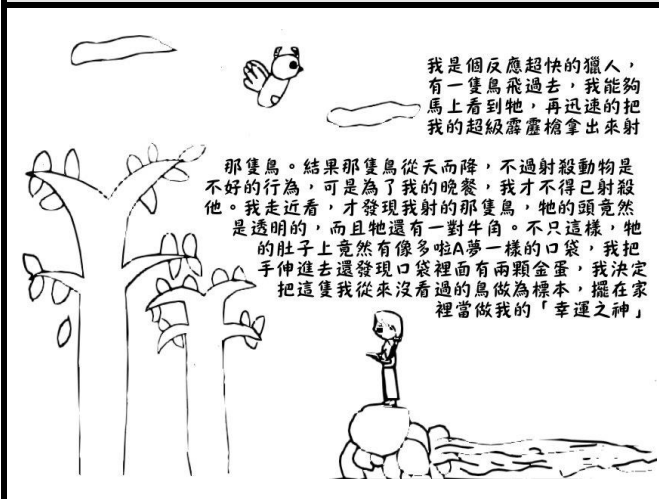 我是個反應超快的獵人，
有一隻鳥飛過去，我能夠
馬上看到牠，再迅速的把
我的超級霹靂槍拿出來射
那隻鳥。結果那隻鳥從天而降，不過射殺動物是
不好的行為，可是為了我的晚餐，我才不得已射殺
他。我走近看，才發現我射的那隻鳥，牠的頭竟然
是透明的，而且牠還有一對牛角。不只這樣，牠
的肚子上竟然有像多啦A夢一樣的口袋，我把
手伸進去還發現口袋裡面有兩顆金蛋，我決定
把這隻我從來沒看過的鳥做為標本，擺在家
裡當做我的「幸運之神」